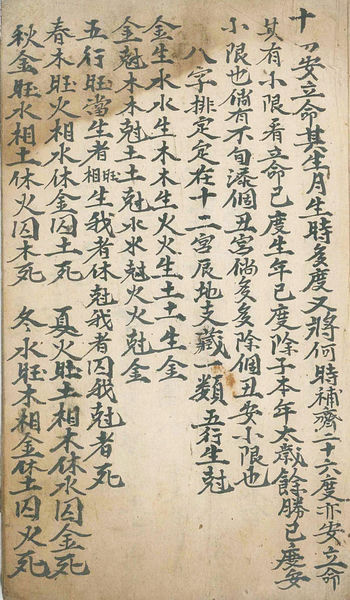 十安立命其生月生時多度又將何時補齊二十六度亦安立命
其有小限看立命己度生年己度除子本年大歲餘勝己度安
小限也倘有不旬添個丑宮倘多多除個丑安小限也
八字排定定在十二宮辰地支藏一類 五行生尅
金生水水生木木生火火生土土生金
金尅木木尅土土尅水水尅火火尅金
五行旺當生者旺相生我者休尅我者囚我尅者死
春木旺火相水休金囚土死 夏火旺土相木休水囚金死
秋金旺水相土休火囚木死 冬水旺木相金休土囚火死